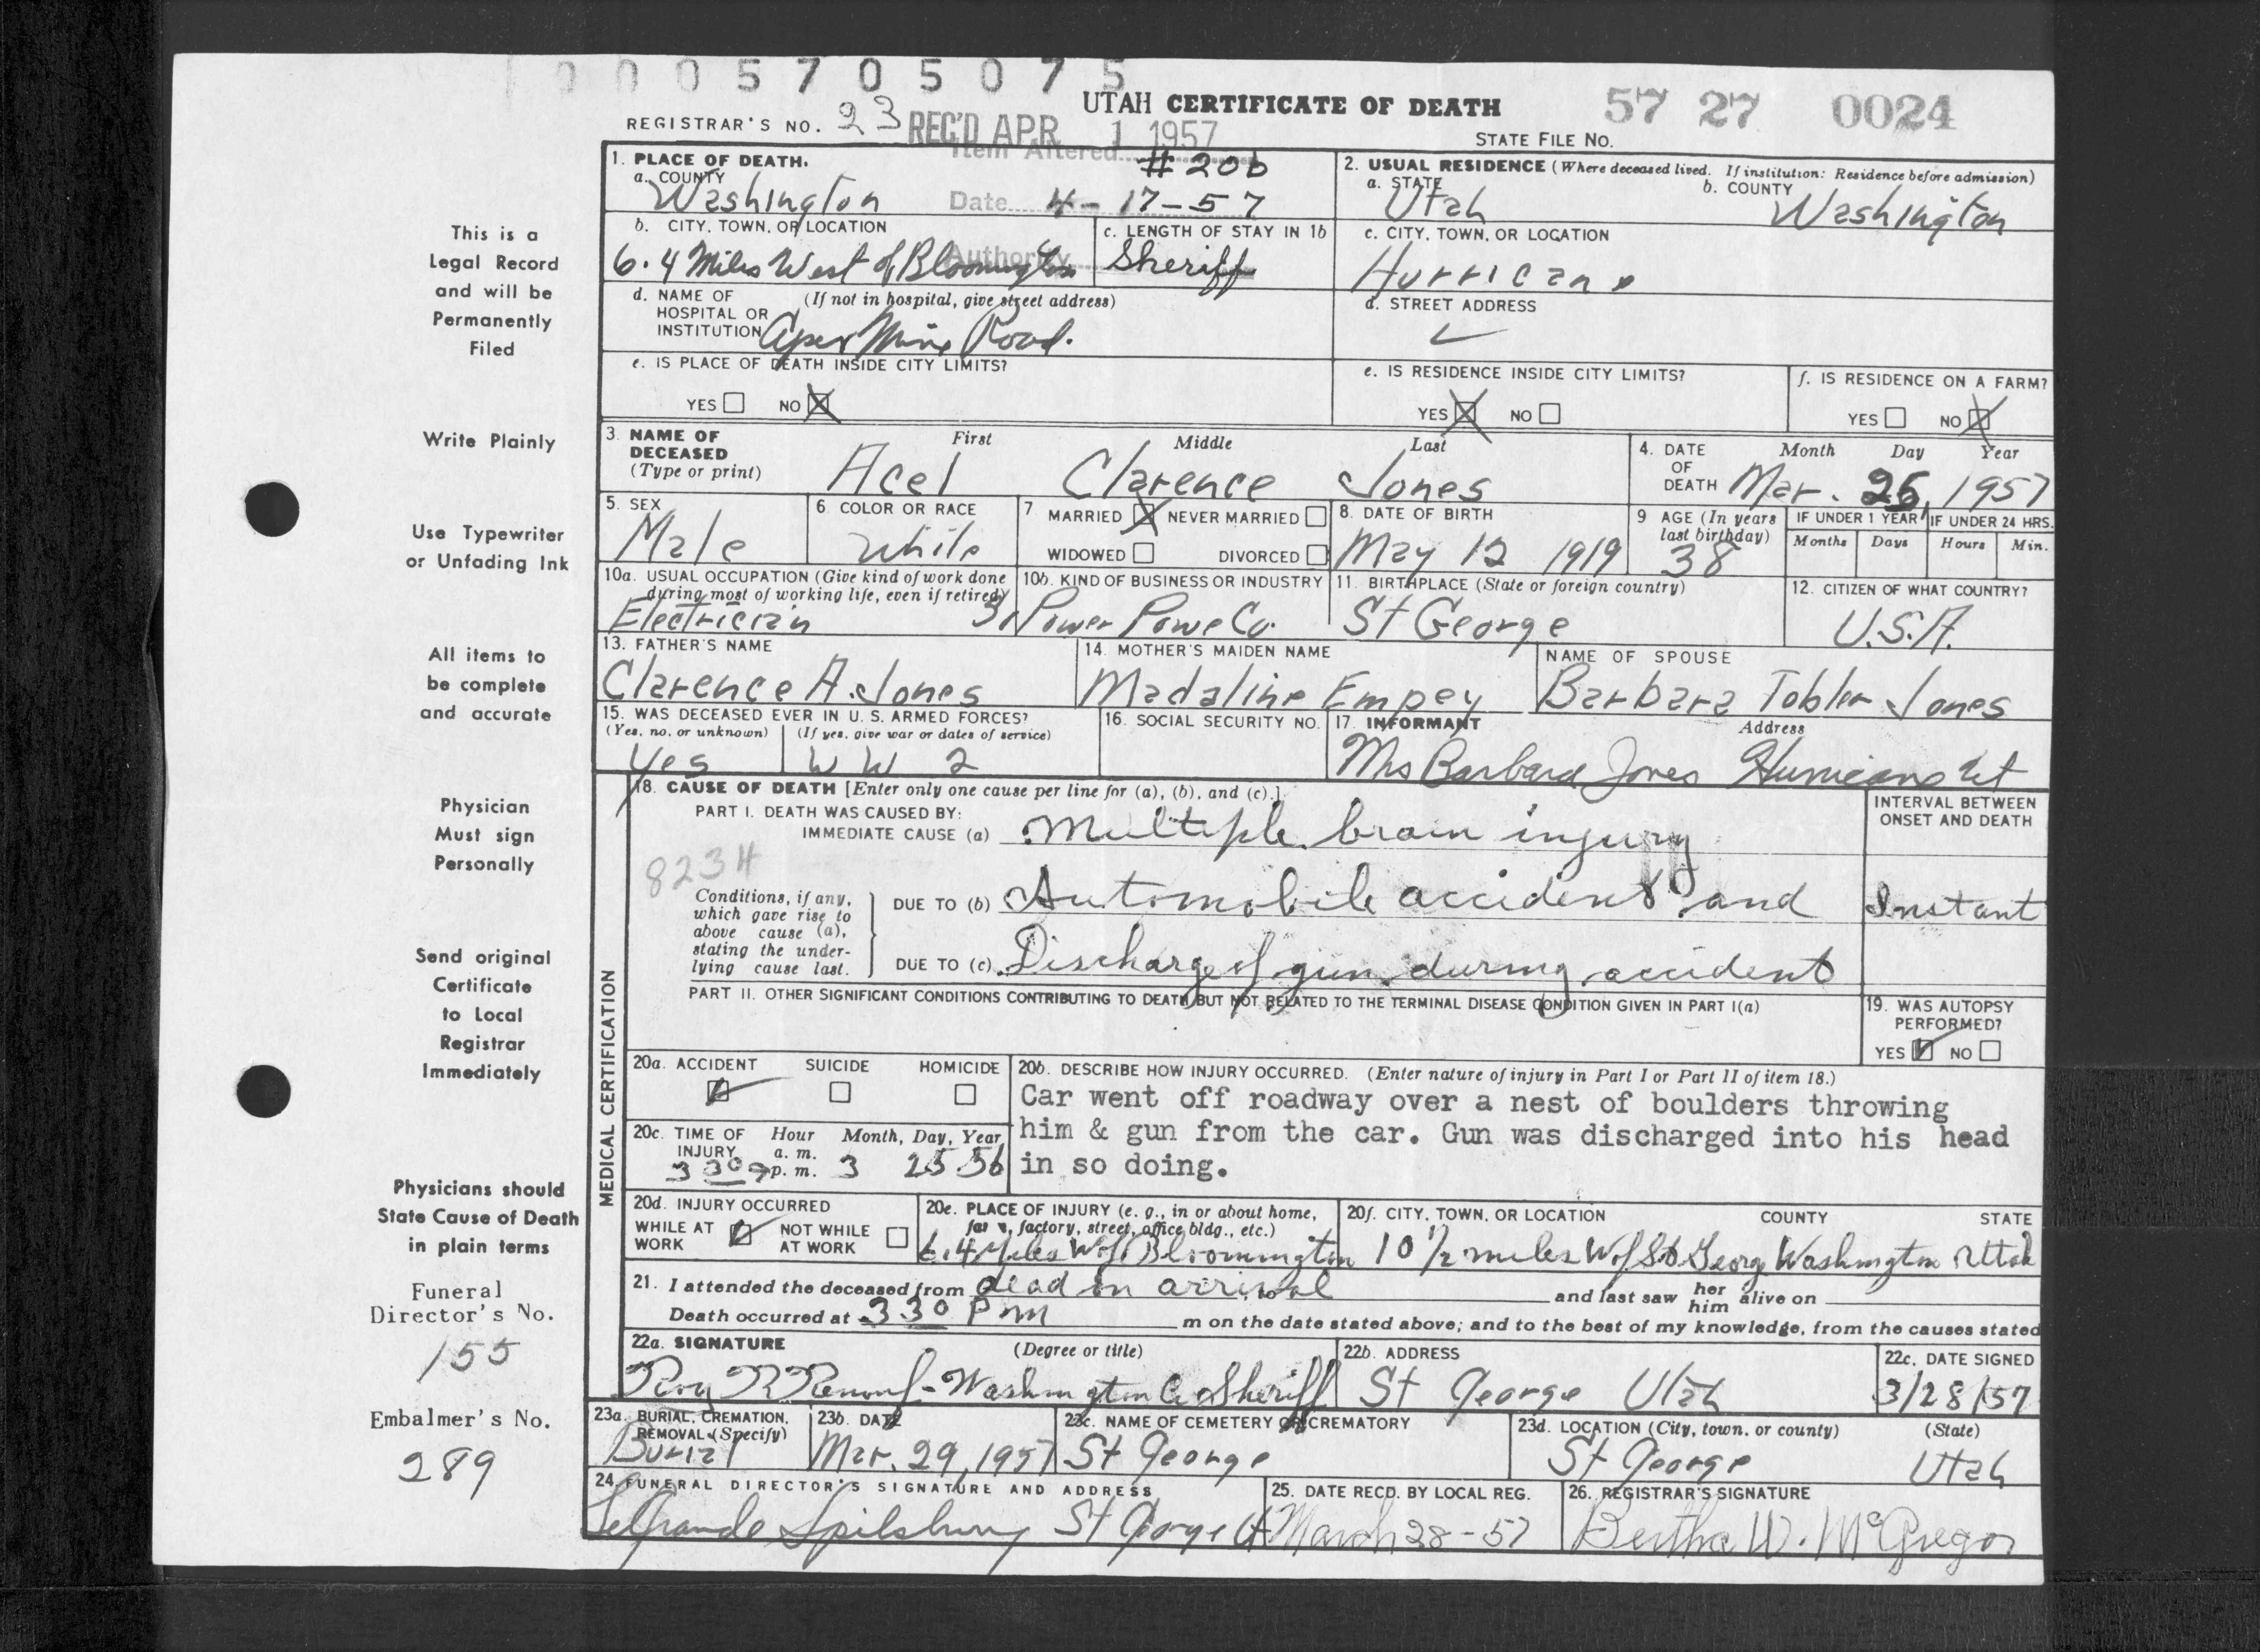 0005705075
UTAH CERTIFICATE OF DEATH
57 27 0024
REGISTRAR'S NO. 23 REC'D APR 1 1957
STATE FILE NO.
Item Altered #20b
Date 4-17-57
Authority Sheriff
1. PLACE OF DEATH.
a. COUNTY
Washington
2. USUAL RESIDENCE (Where deceased lived. If institution: Residence before admission)
a. STATE
Utah
b. COUNTY
Washington
b. CITY, TOWN, OR LOCATION
6.4 Miles West of Bloomington
c. LENGTH OF STAY IN 1b
c. CITY, TOWN, OR LOCATION
Hurricane
d. NAME OF HOSPITAL OR INSTITUTION (If not in hospital, give street address)
Apex Mine Road.
d. STREET ADDRESS
e. IS PLACE OF DEATH INSIDE CITY LIMITS?
YES NO X
e. IS RESIDENCE INSIDE CITY LIMITS?
YES X NO
f. IS RESIDENCE ON A FARM?
YES NO X
3. NAME OF DECEASED (Type or print)
First Middle Last
Acel Clarence Jones
4. DATE OF DEATH Month Day Year
Mar. 25, 1957
5. SEX
Male
6. COLOR OR RACE
White
7. MARRIED X NEVER MARRIED
WIDOWED DIVORCED
8. DATE OF BIRTH
May 12 1919
9 AGE (In years last birthday)
38
IF UNDER 1 YEAR IF UNDER 24 HRS.
Months Days Hours Min.
10a. USUAL OCCUPATION (Give kind of work done during most of working life, even if retired)
Electrician
10b. KIND OF BUSINESS OR INDUSTRY
Power Powe Co.
11. BIRTHPLACE (State or foreign country)
St George
12. CITIZEN OF WHAT COUNTRY?
U.S.A.
13. FATHER'S NAME
Clarence A. Jones
14. MOTHER'S MAIDEN NAME
Madaline Empey
NAME OF SPOUSE
Barbara Tobler Jones
15. WAS DECEASED EVER IN U. S. ARMED FORCES?
(Yes, no, or unknown) (If yes, give war or dates of service)
Yes WW 2
16. SOCIAL SECURITY NO.
17. INFORMANT Address
Mrs Barbara Jones Hurricane Ut
MEDICAL CERTIFICATION
18. CAUSE OF DEATH [Enter only one cause per line for (a), (b), and (c).]
PART I. DEATH WAS CAUSED BY:
IMMEDIATE CAUSE (a) Multiple brain injury
INTERVAL BETWEEN ONSET AND DEATH
8234
Conditions, if any, which gave rise to above cause (a), stating the underlying cause last.
DUE TO (b) Automobile accident and
Instant
DUE TO (c) Discharge of gun during accident
PART II. OTHER SIGNIFICANT CONDITIONS CONTRIBUTING TO DEATH BUT NOT RELATED TO THE TERMINAL DISEASE CONDITION GIVEN IN PART I(a)
19. WAS AUTOPSY PERFORMED?
YES NO
20a. ACCIDENT SUICIDE HOMICIDE
20b. DESCRIBE HOW INJURY OCCURRED. (Enter nature of injury in Part I or Part II of item 18.)
Car went off roadway over a nest of boulders throwing
him & gun from the car. Gun was discharged into his head
in so doing.
20c. TIME OF INJURY Hour Month, Day, Year
a. m.
330 p. m. 3 25 56
20d. INJURY OCCURRED
WHILE AT WORK NOT WHILE AT WORK
20e. PLACE OF INJURY (e. g., in or about home, farm, factory, street, office bldg., etc.)
6.4 Miles W of Bloomington
20f. CITY, TOWN, OR LOCATION COUNTY STATE
10 1/2 miles W of St George Washington Utah
21. I attended the deceased from dead on arrival and last saw her him alive on
Death occurred at 330 P m m on the date stated above; and to the best of my knowledge, from the causes stated
22a. SIGNATURE (Degree or title)
Roy R Renouf - Washington Co Sheriff
22b. ADDRESS
St George Utah
22c. DATE SIGNED
3/28/57
23a. BURIAL, CREMATION, REMOVAL (Specify)
Burial
23b. DATE
Mar. 29, 1957
23c. NAME OF CEMETERY OR CREMATORY
St George
23d. LOCATION (City, town, or county) (State)
St George Utah
24. FUNERAL DIRECTOR'S SIGNATURE AND ADDRESS
LeGrande Spilsbury St George Ut
25. DATE RECD. BY LOCAL REG.
March 28-57
26. REGISTRAR'S SIGNATURE
Bertha W. McGregor
This is a
Legal Record
and will be
Permanently
Filed
Write Plainly
Use Typewriter
or Unfading Ink
All items to
be complete
and accurate
Physician
Must sign
Personally
Send original
Certificate
to Local
Registrar
Immediately
Physicians should
State Cause of Death
in plain terms
Funeral
Director's No.
155
Embalmer's No.
289